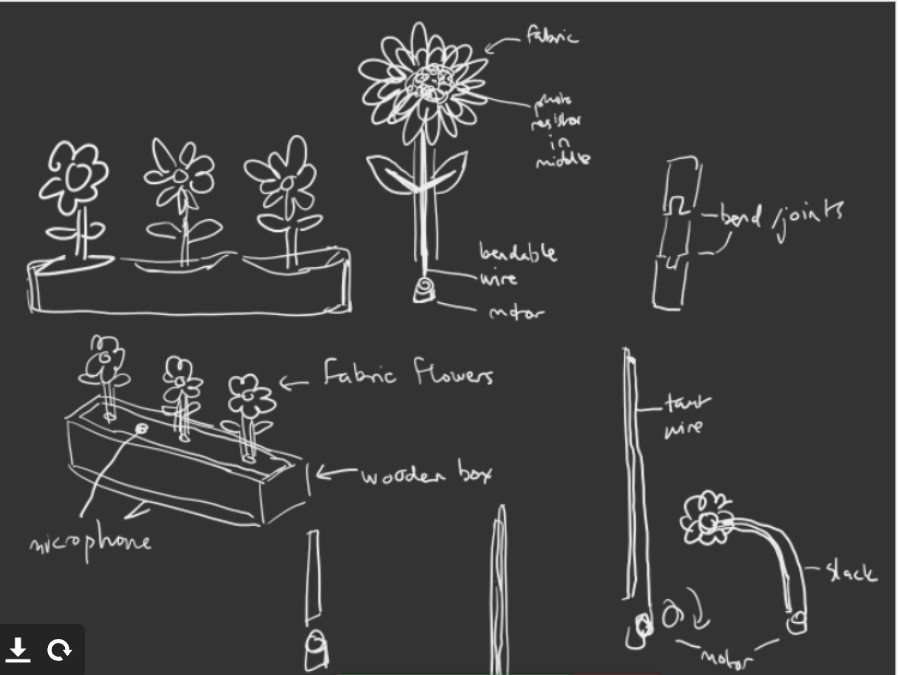 fabric
photo
resistor
in
middle
bend joints
bendable
wire
motor
Fabric Flowers
wooden box
microphone
taut
wire
slack
motor